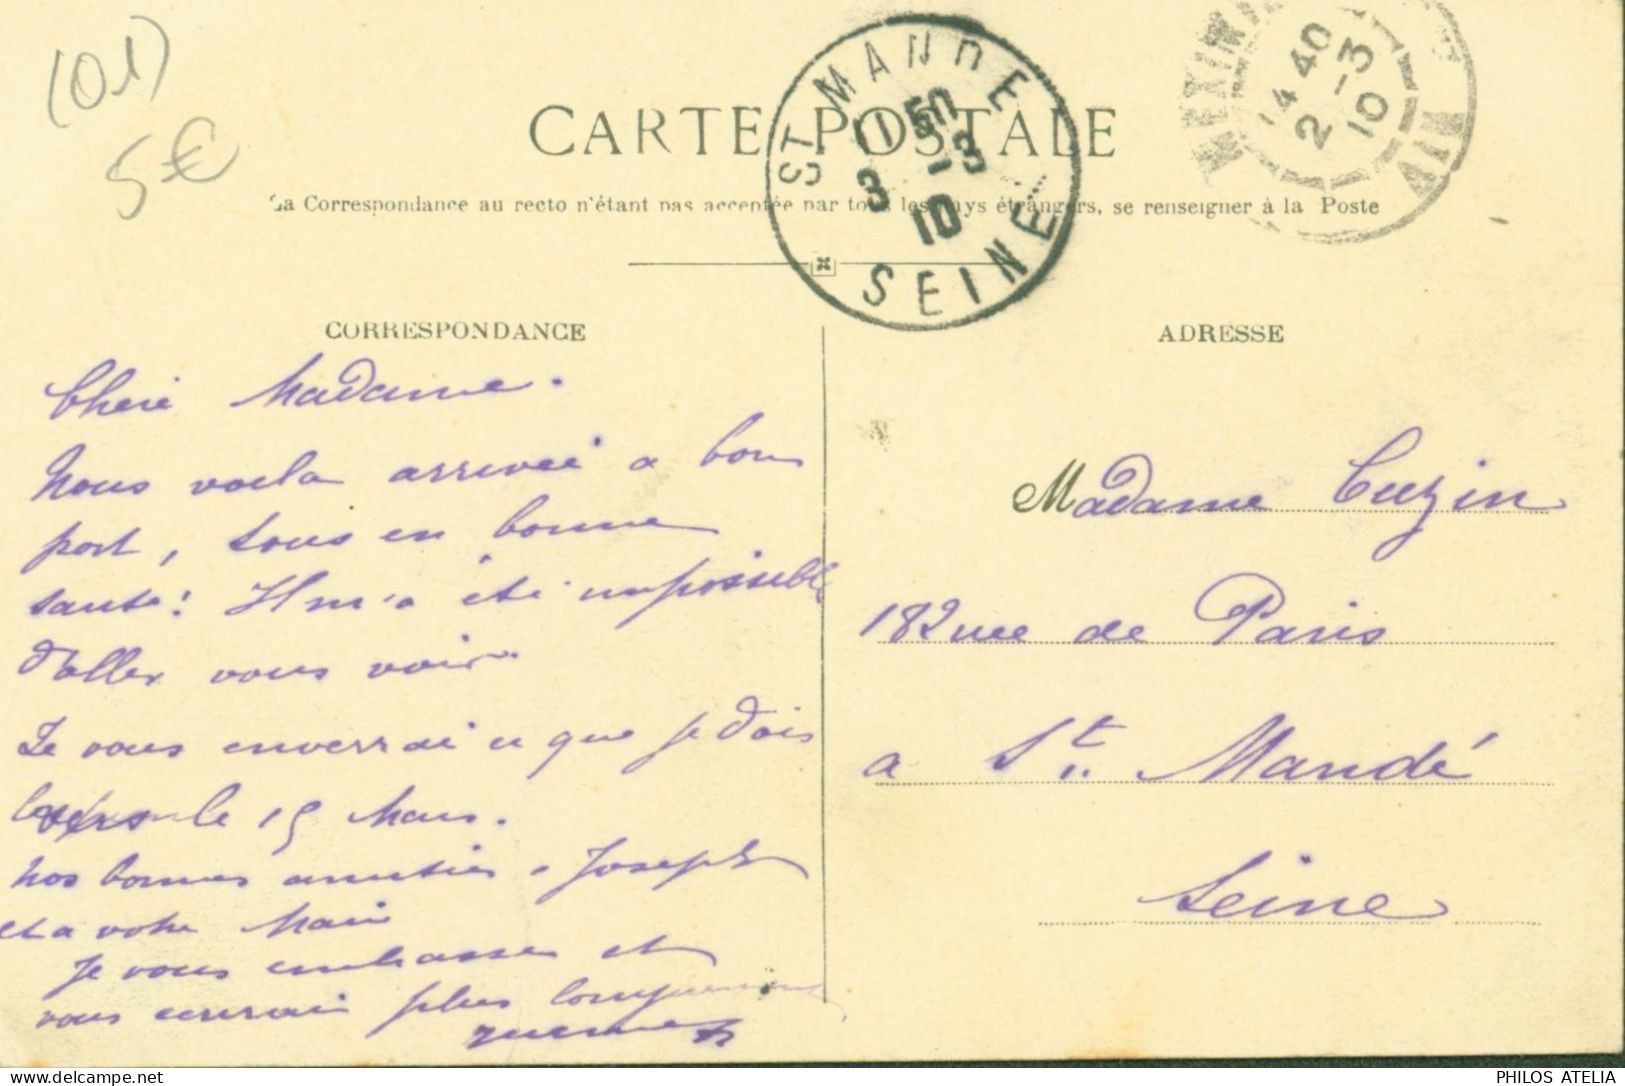 (01)
5€
CARTE POSTALE
La Correspondance au recto n'étant pas acceptée par tous les pays étrangers, se renseigner à la Poste
ST MANDE
11 50
3 -3
10
SEINE
MEXIM
14 40
2 -3
10
AIN
CORRESPONDANCE
ADRESSE
Chère Madame.
Nous voila arrivée a bon
port, tous en bonne
santé! Il m'a été impossible
d'aller vous voir.
Je vous enverrai ce que je dois
vers le 15 Mars.
Nos bonnes amitiés a Joseph
et a votre Mari
Je vous embrasse et
vous écrirai plus longuement
Madame Cuzin
182 rue de Paris
a St. Mandé
Seine
PHILOS ATELIA